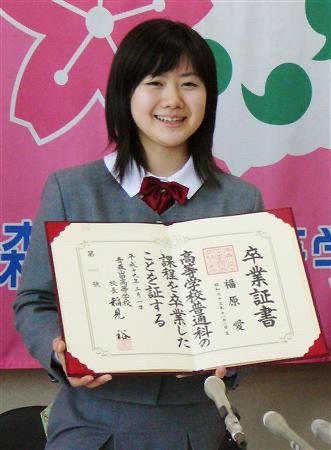 森
等学
卒業証書
福原 愛
昭和六十三年十一月一日生
高等学校普通科の
課程を卒業した
ことを証する
平成十九年三月一日
青森山田高等学校
校長 稲見 裕
第 号